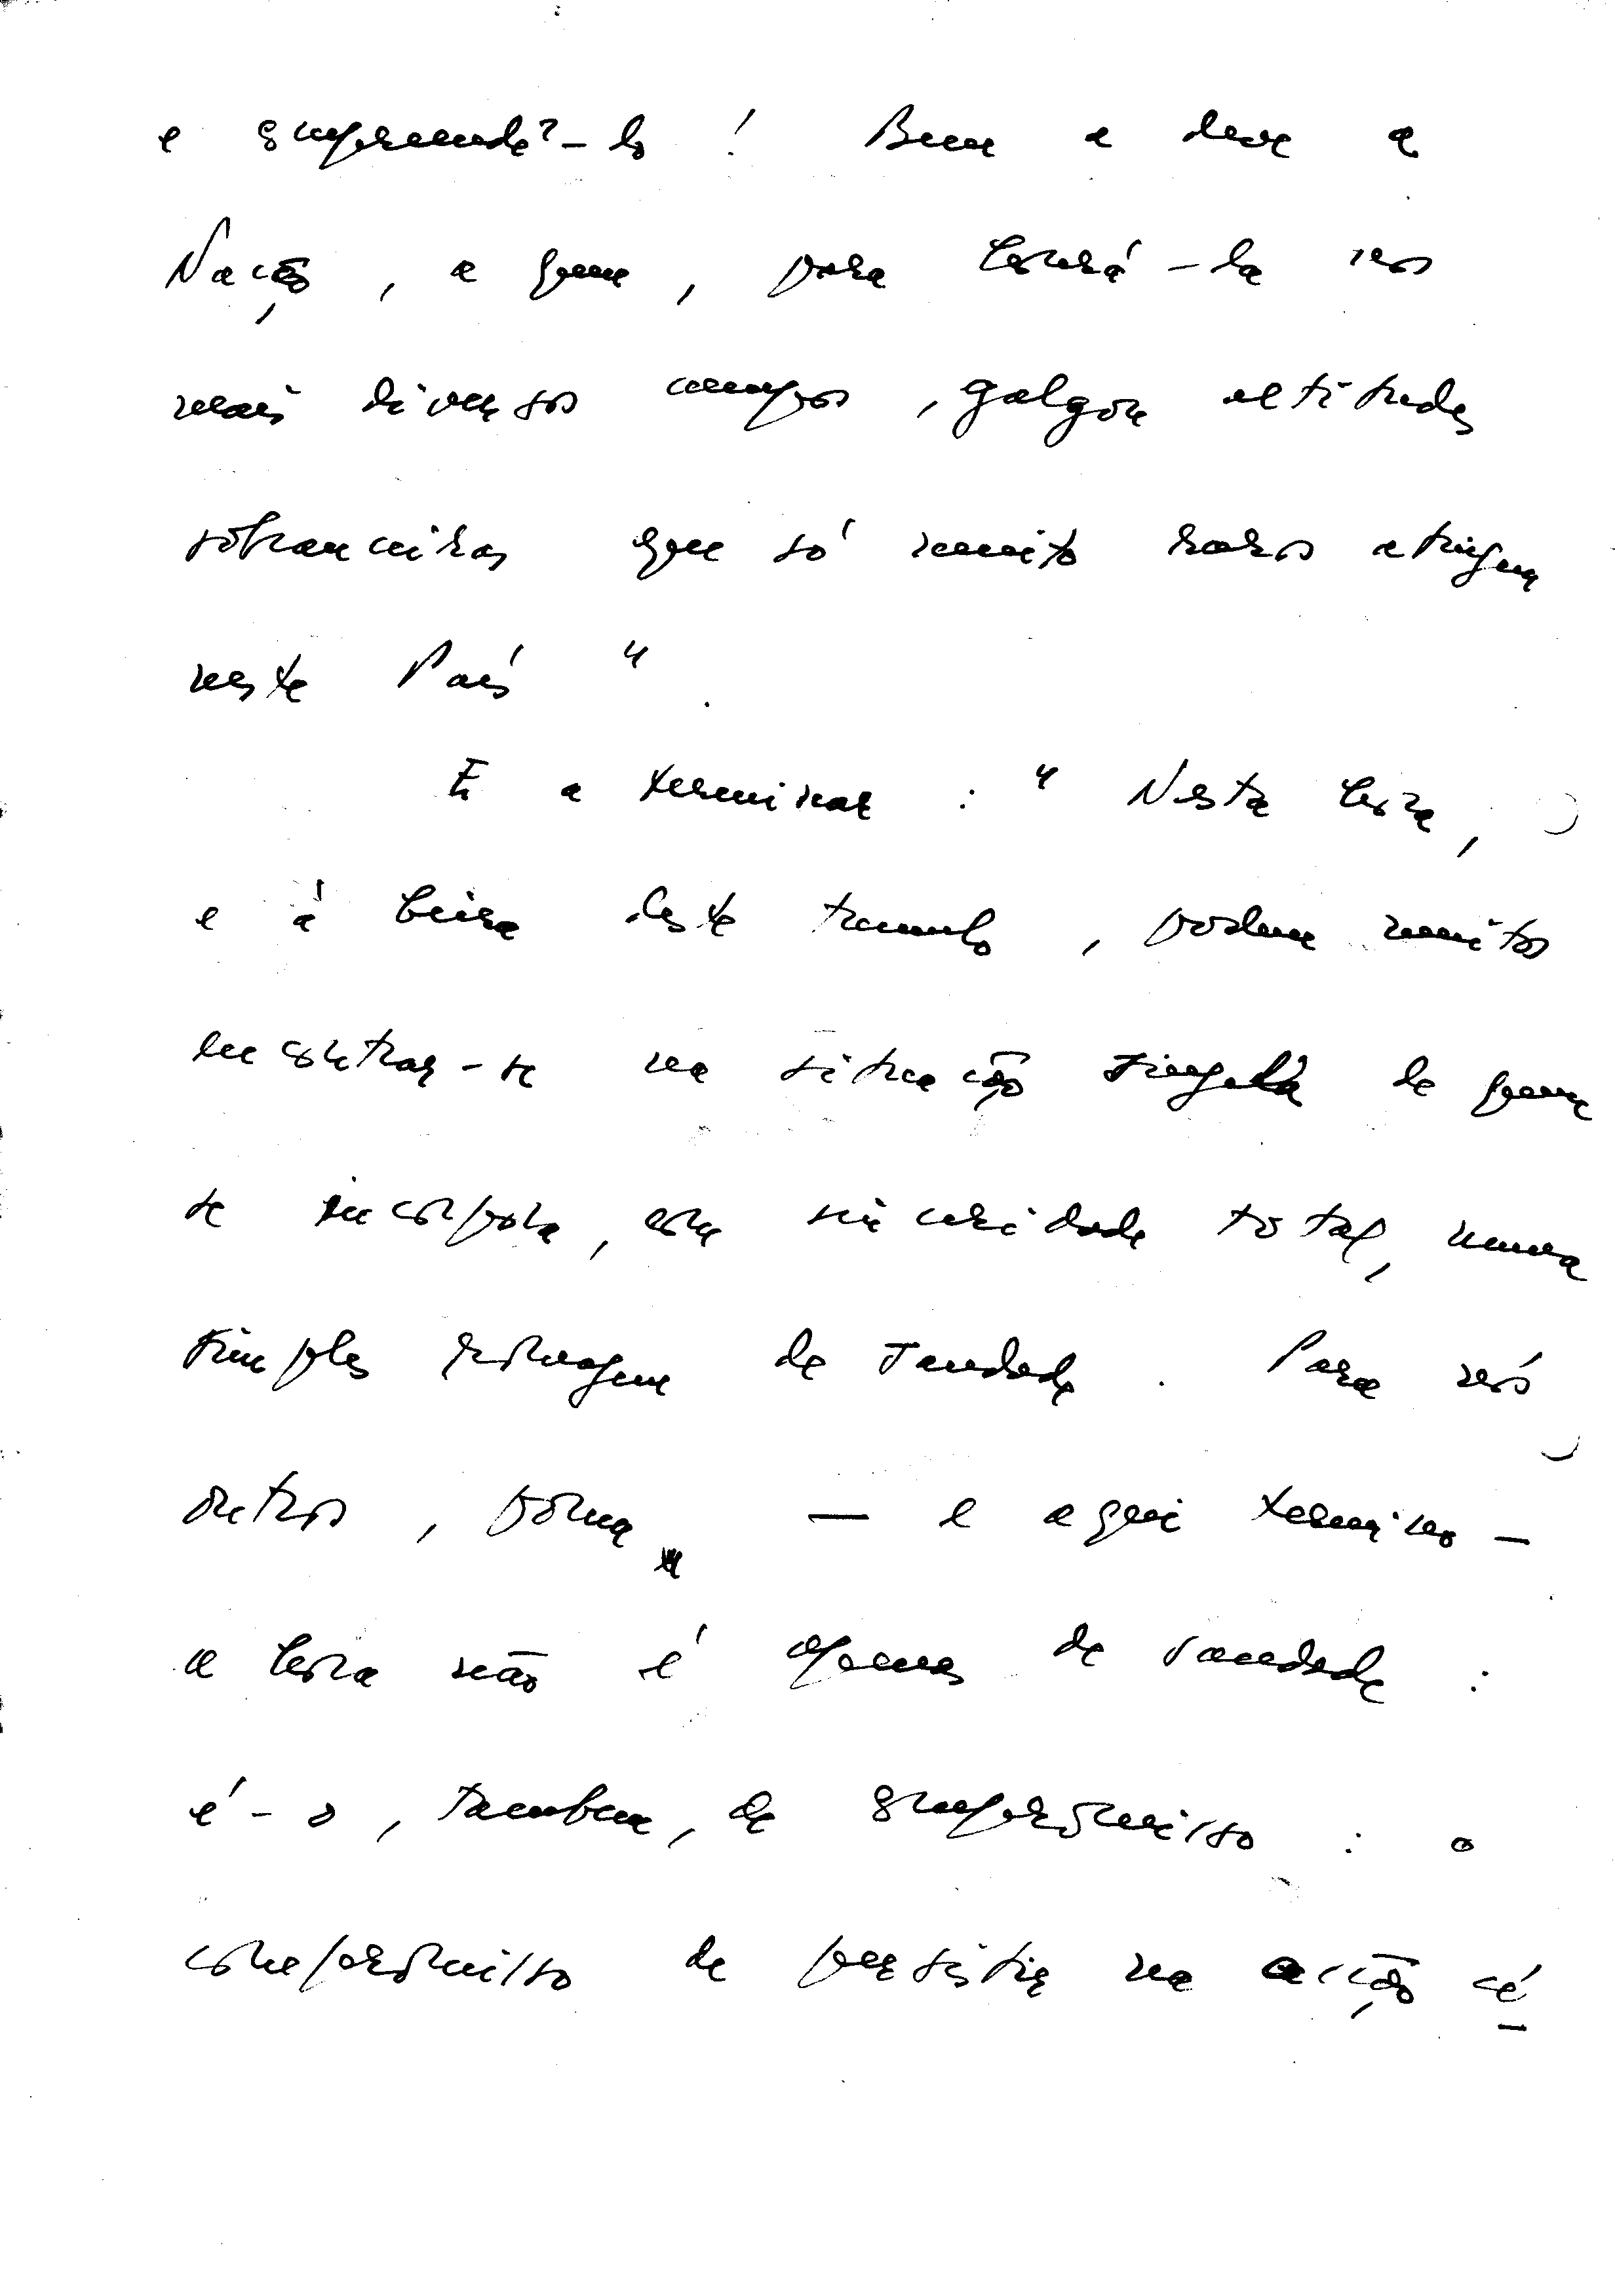 e compreendê-lo! Bem a deve a
Nação, a quem, para honrá-la nos
mais diversos campos, galgou altitudes
sobranceiras que só muito raros atingem
neste País".
E a terminar: "Nesta hora,
e à beira deste tumulo, podem muitos
encontrar-se na situação singela de quem
se incorpora, com sinceridade total, numa
simples romagem de saudade. Para nós
outros, porem — e aqui termino —
a hora não é apenas de saudade:
é-o, tambem, de compromisso: o
compromisso de persistir na acção cé